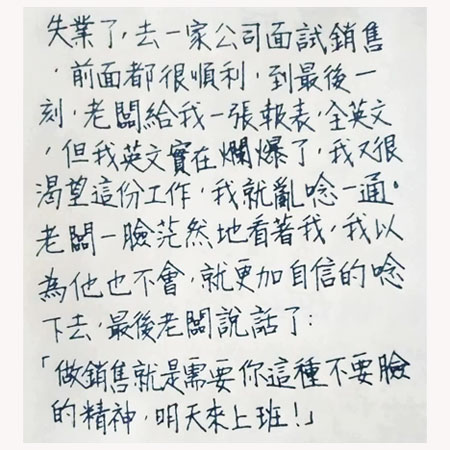 失業了,去一家公司面試銷售
,前面都很順利,到最後一
刻,老闆給我一張報表,全英文
,但我英文實在爛爆了,我又很
渴望這份工作,我就亂唸一通。
老闆一臉茫然地看著我,我以
為他也不會,就更加自信的唸
下去,最後老闆說話了:
「做銷售就是需要你這種不要臉
的精神,明天來上班!」